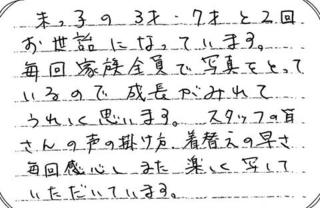 末っ子の3才・7才と2回
お世話になっています。
毎回家族全員で写真をとって
いるので成長がみれて
うれしく思います。スタッフの皆
さんの声の掛け方、着替えの早さ
毎回感心しまた楽しく写して
いただいています。